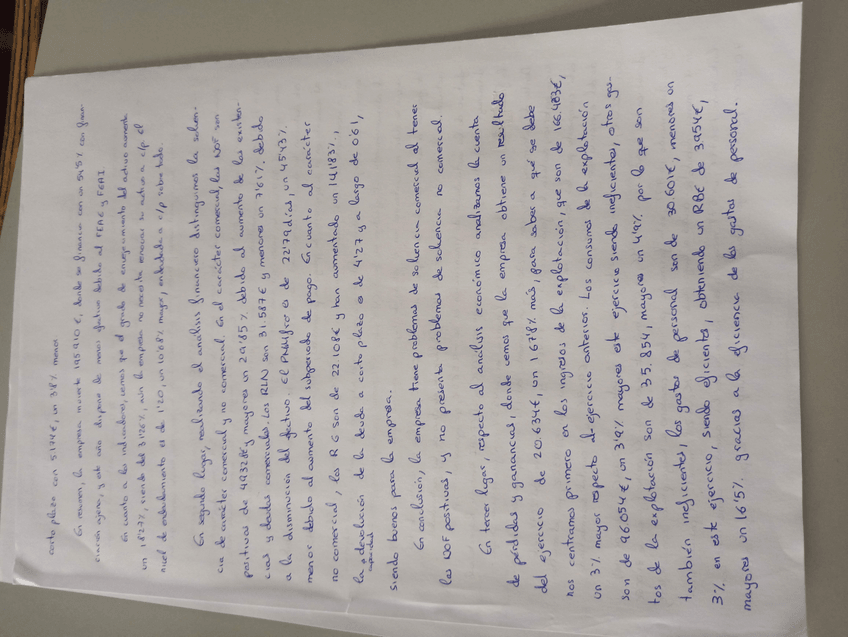 corto plazo con 5.174€, un 3'8% menos.
En resumen, la empresa invierte 195.910 €, donde se financia con un 54'5% con finan-
ciación ajena, y este año dispone de menos efectivo debido al FEAE y FEAI.
En cuanto a los indicadores, vemos que el grado de envejecimiento del activo aumenta
un 18'27%, siendo del 31'76%, aún la empresa no necesita renovar su activo a c/p el
nivel de endeudamiento es de 1'20, un 10'08% mayor, endeudada a c/p sobre todo.
En segundo lugar, realizando el análisis financiero distinguimos la solven-
cia de carácter comercial y no comercial. En el carácter comercial, las NOF son
positivas de 9.932'8€ y mayores un 29'85% debido al aumento de las existen-
cias y deudas comerciales. Los RLN son 31.587€ y menores un 7'61%, debido
a la disminución del efectivo. El PNMfro es de 22'79 días, un 45'43%
menor debido al aumento del subperiodo de pago. En cuanto al carácter
no comercial, los RG son de 22.108€ y han aumentado un 141'83%,
la capacidad devolución de la deuda a corto plazo es de 4'27 y a largo de 0'61,
siendo buenos para la empresa.
En conclusión, la empresa tiene problemas de solvencia comercial al tener
las NOF positivas, y no presenta problemas de solvencia no comercial.
En tercer lugar, respecto al análisis económico analizamos la cuenta
de pérdidas y ganancias, donde vemos que la empresa obtiene un resultado
del ejercicio de 20.634€, un 167'8% más, para saber a qué se debe
nos centramos primero en los ingresos de la explotación, que son de 166.483€,
un 3% mayor respecto al ejercicio anterior. Los consumos de la explotación
son de 96.054€, un 3'9% mayores este ejercicio siendo ineficientes, otros gas-
tos de la explotación son de 35.854, mayores un 4'9% por lo que son
también ineficientes, los gastos de personal son de 30.601€, menores un
3% en este ejercicio, siendo eficientes, obteniendo un RBE de 3954€,
mayores un 16'5% gracias a la eficiencia de los gastos de personal.